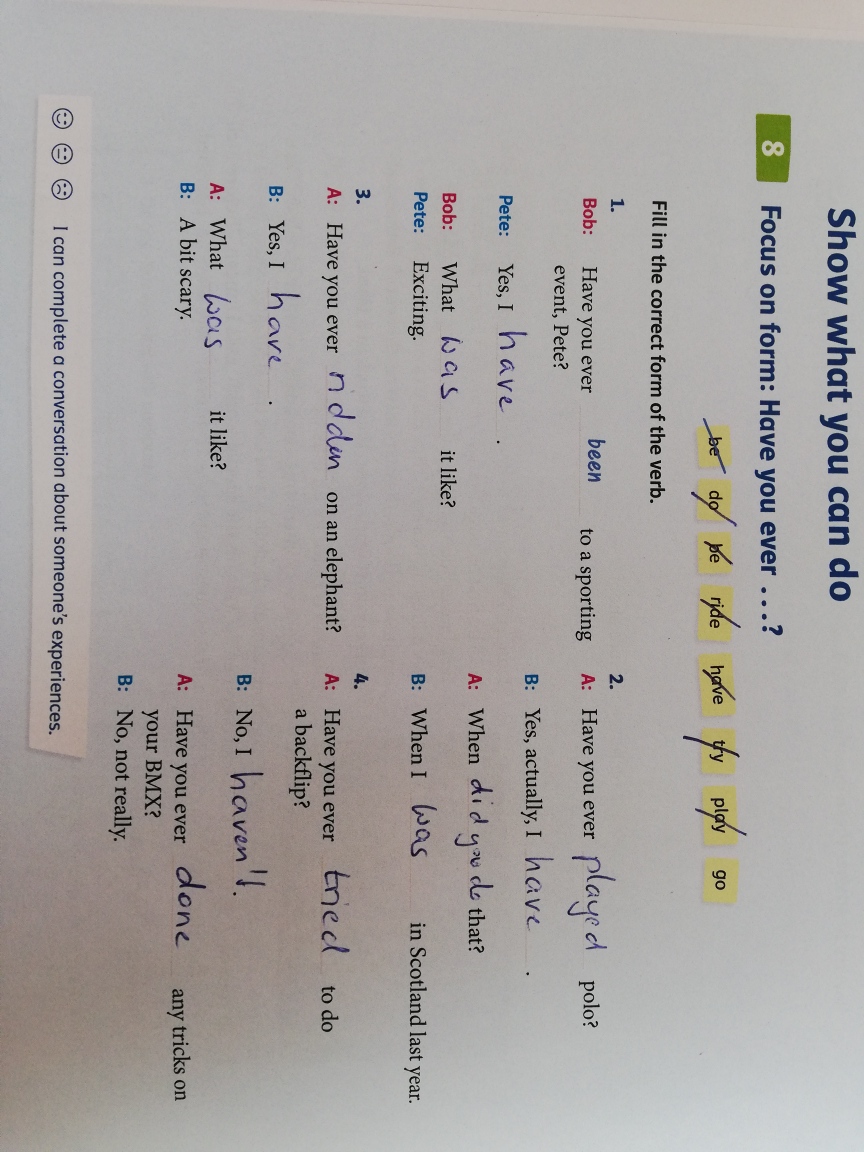 Show what you can do
8 Focus on form: Have you ever …?
be do be ride have try play go
Fill in the correct form of the verb.
1.
Bob: Have you ever been to a sporting
event, Pete?
Pete: Yes, I have .
Bob: What was it like?
Pete: Exciting.
2.
A: Have you ever played polo?
B: Yes, actually, I have .
A: When did you do that?
B: When I was in Scotland last year.
3.
A: Have you ever ridden on an elephant?
B: Yes, I have .
A: What was it like?
B: A bit scary.
4.
A: Have you ever tried to do
a backflip?
B: No, I haven't.
A: Have you ever done any tricks on
your BMX?
B: No, not really.
I can complete a conversation about someone's experiences.